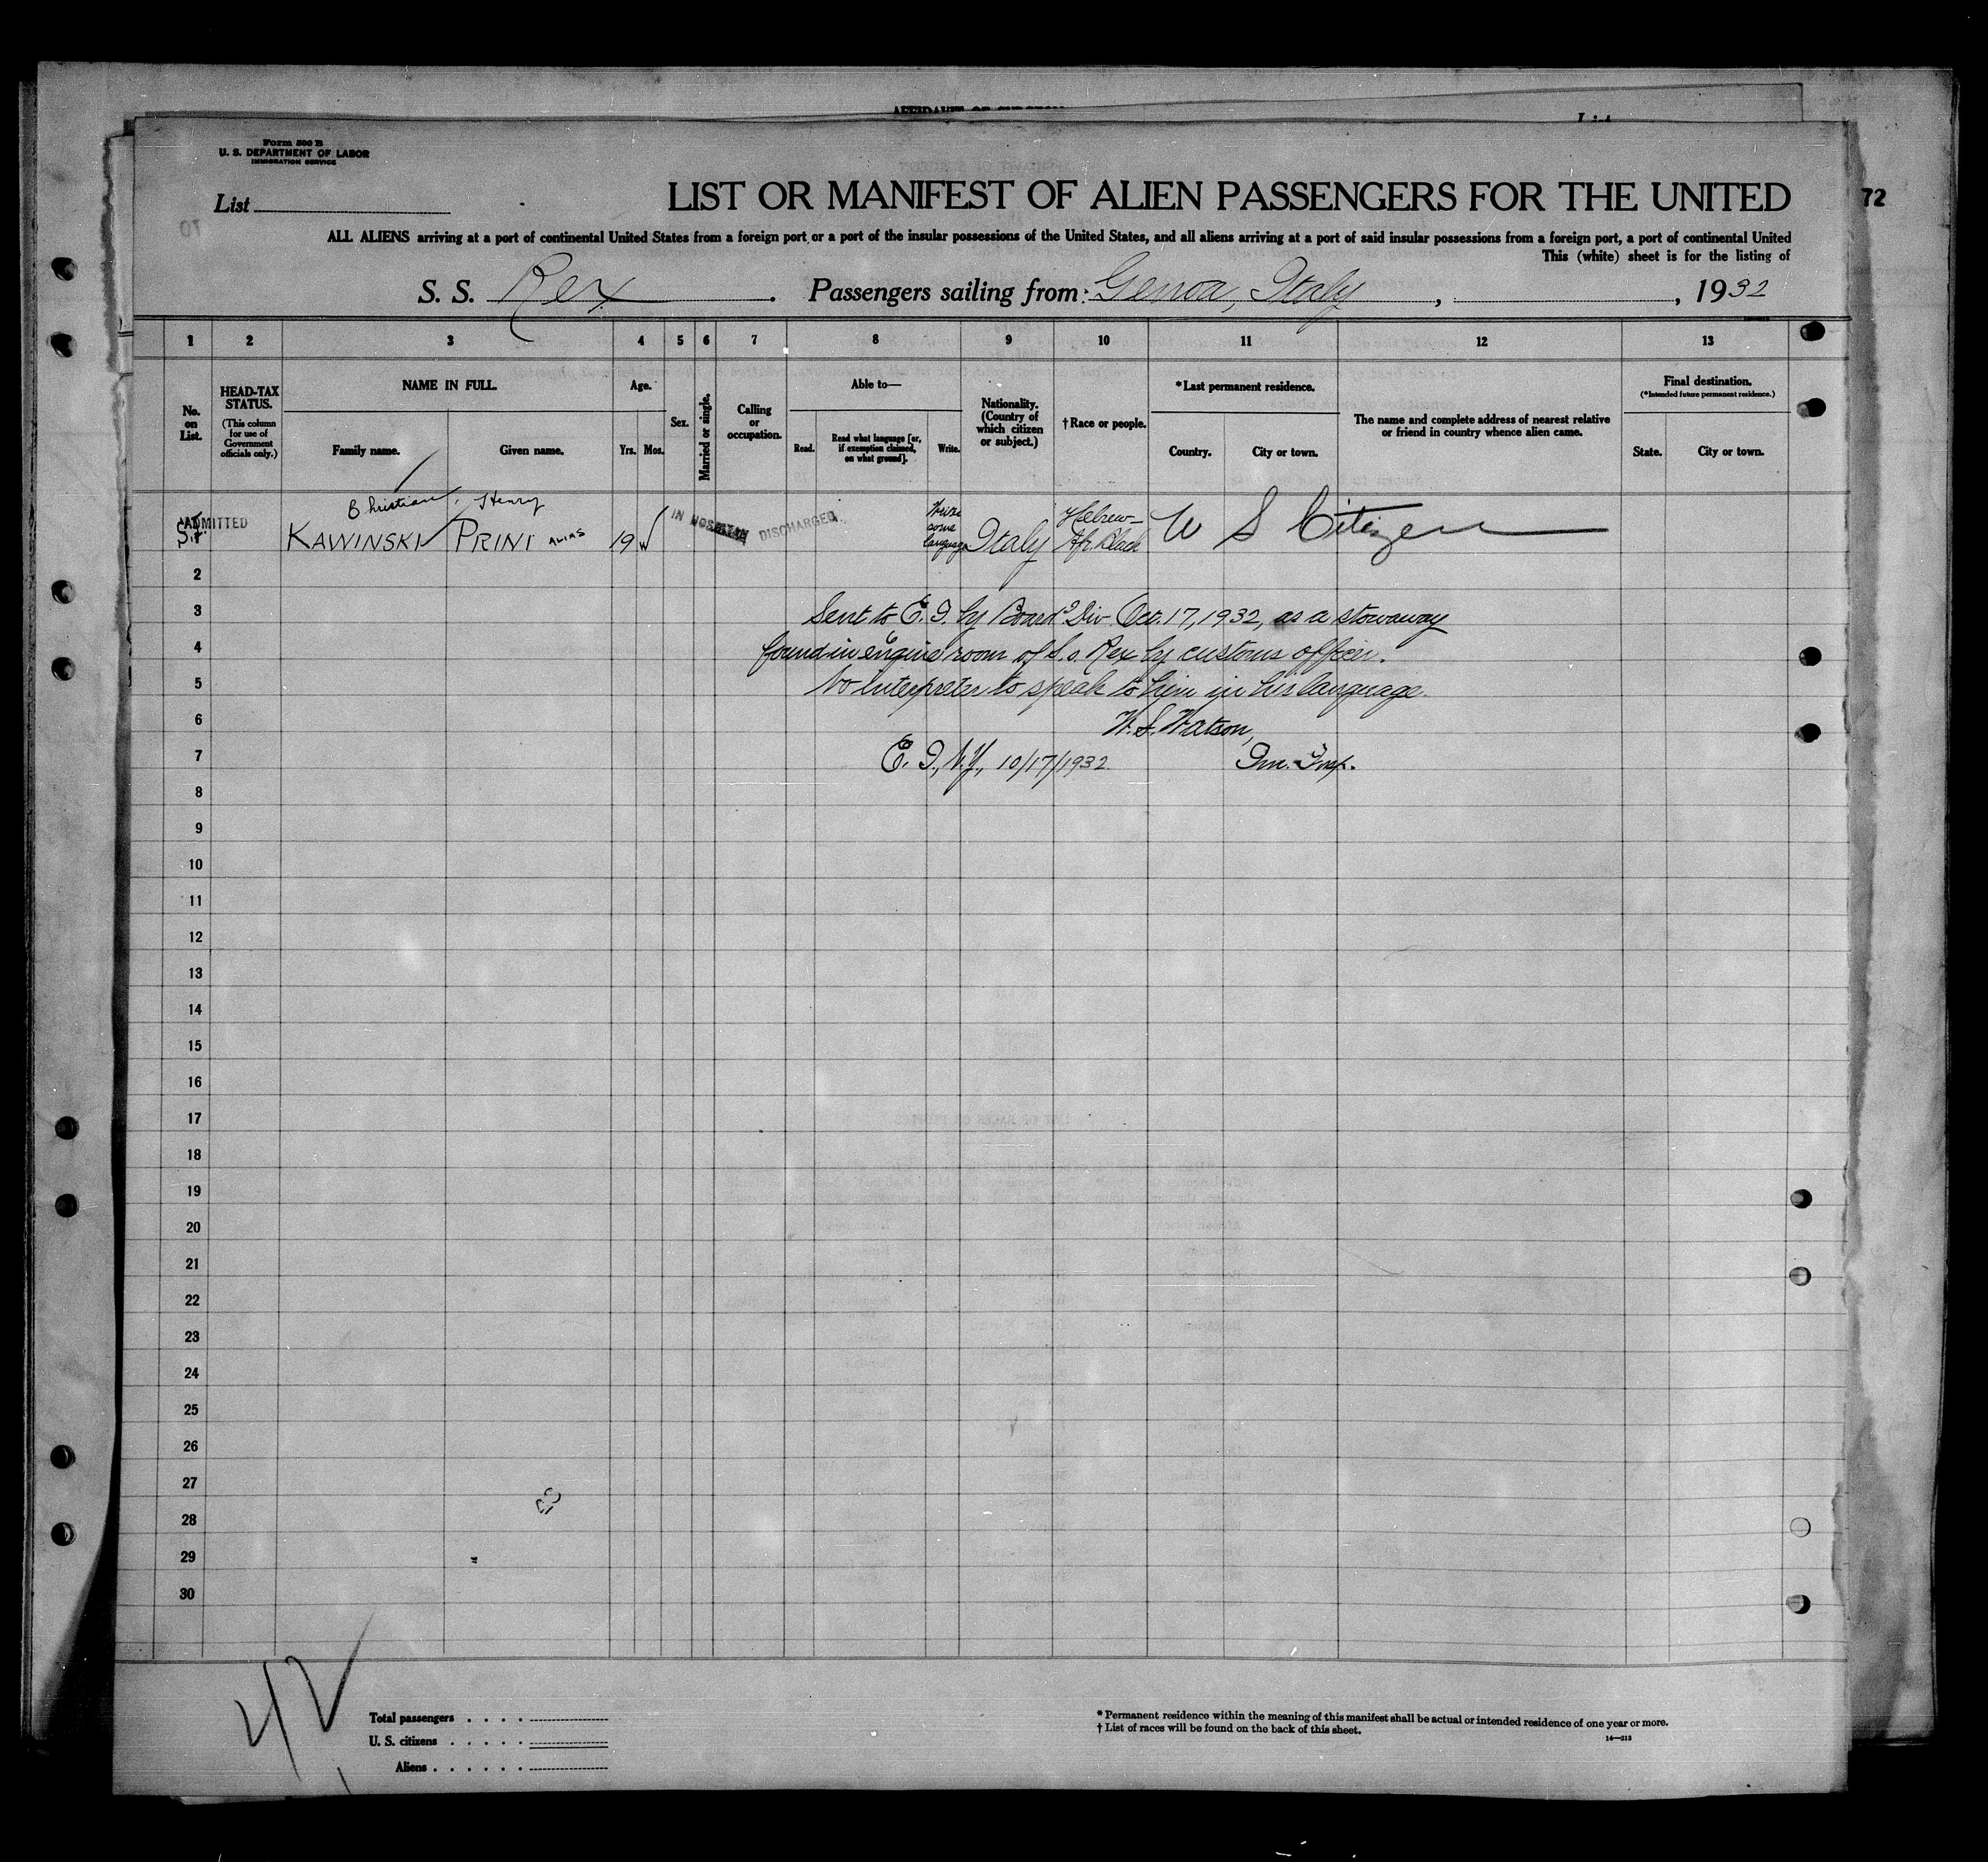 AFFIDAVIT OF SURGEON
List
Form 500 B
U. S. DEPARTMENT OF LABOR
IMMIGRATION SERVICE
List
LIST OR MANIFEST OF ALIEN PASSENGERS FOR THE UNITED
72
70
ALL ALIENS arriving at a port of continental United States from a foreign port or a port of the insular possessions of the United States, and all aliens arriving at a port of said insular possessions from a foreign port, a port of continental United
This (white) sheet is for the listing of
S. S. Rex. Passengers sailing from: Genoa, Italy, , 1932
1 2 3 4 5 6 7 8 9 10 11 12 13
No. on List.
HEAD-TAX STATUS.
(This column for use of Government officials only.)
NAME IN FULL.
Family name.
Given name.
Age.
Yrs. Mos.
Sex.
Married or single.
Calling or occupation.
Able to—
Read.
Read what language [or, if exemption claimed, on what ground].
Write.
Nationality. (Country of which citizen or subject.)
†Race or people.
*Last permanent residence.
Country.
City or town.
The name and complete address of nearest relative or friend in country whence alien came.
Final destination.
(*Intended future permanent residence.)
State.
City or town.
Christian, Henry
ADMITTED
KAWINSKI PRINI ALIAS 19 IN HOSPITAL DISCHARGED Write some language Italy Hebrew- Afr. Black U S Citizen
2
3 Sent to E. I. by Board'g Div. Oct. 17, 1932, as a stowaway
4 found in engine room of S. S. Rex by customs officer.
5 No interpreter to speak to him in his language.
6 W. S. Watson,
7 E. I., N.Y., 10/17/1932 Imm. Insp.
8
9
10
11
12
13
14
15
16
17
18
19
20
21
22
23
24
25
26
27
28
29
30
Total passengers . . . .
U. S. citizens . . . . .
Aliens . . . . . .
* Permanent residence within the meaning of this manifest shall be actual or intended residence of one year or more.
† List of races will be found on the back of this sheet.
14—213